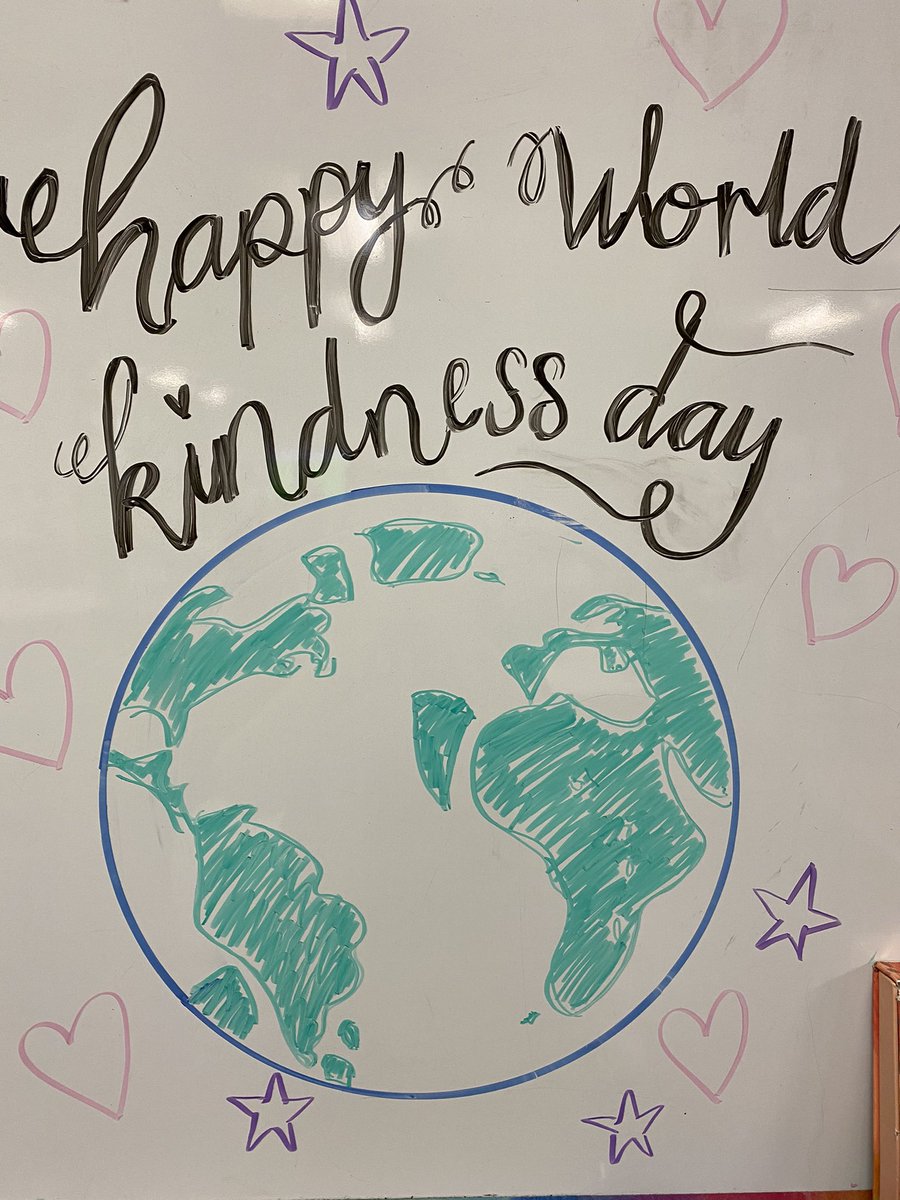 happy World
kindness day